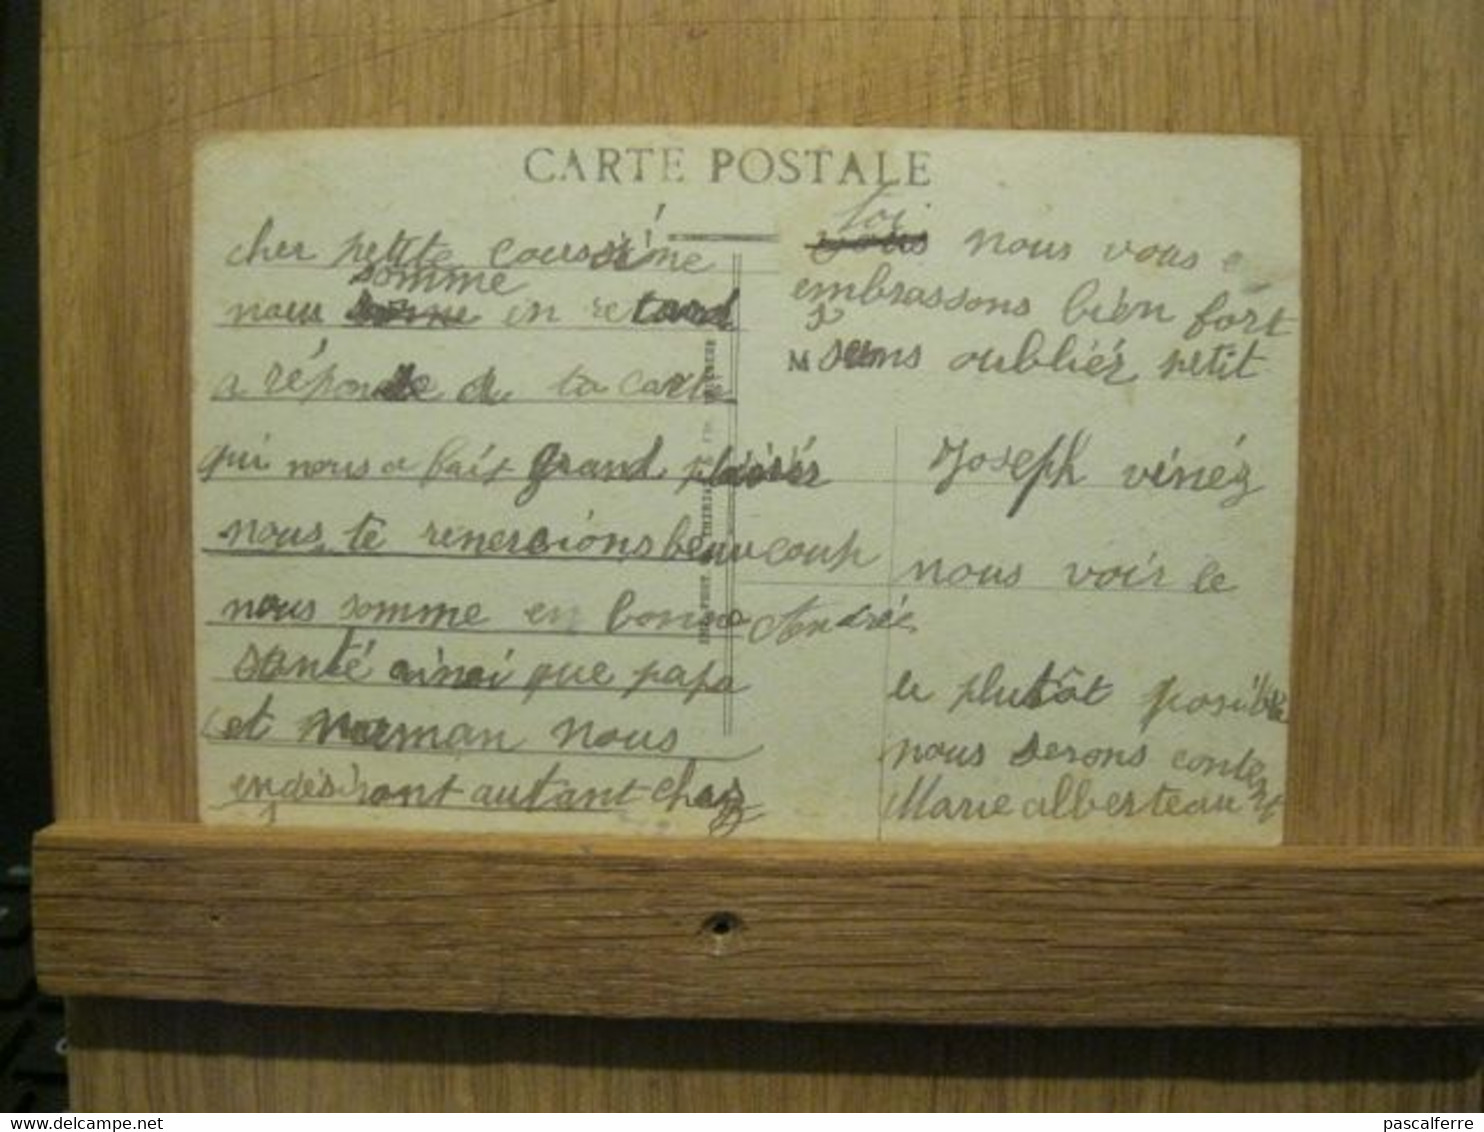 CARTE POSTALE
cher petite coussine
somme
nous somme en retard
a réponde a ta carte
qui nous a fait grand plaisir
nous te remercions beaucoup
nous somme en bonne
santé ainsi que papa
et maman nous
en désiront autant chez
toi
vous nous vous
embrassons bien fort
M sans oubliér petit
Joseph vénéz
nous voir le
Andrée
le plutôt posible
nous serons content
Marie alberteau
pascalferre